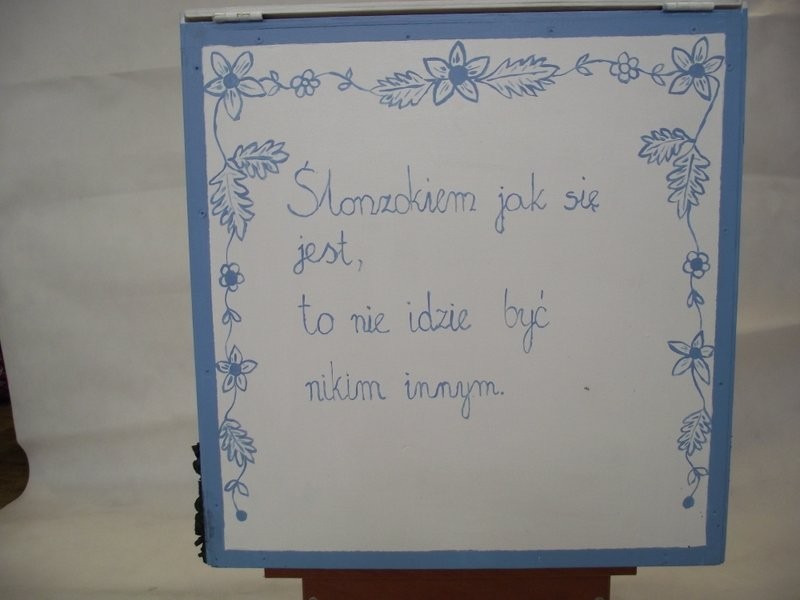 Ślonzokiem jak się
jest,
to nie idzie być
nikim innym.